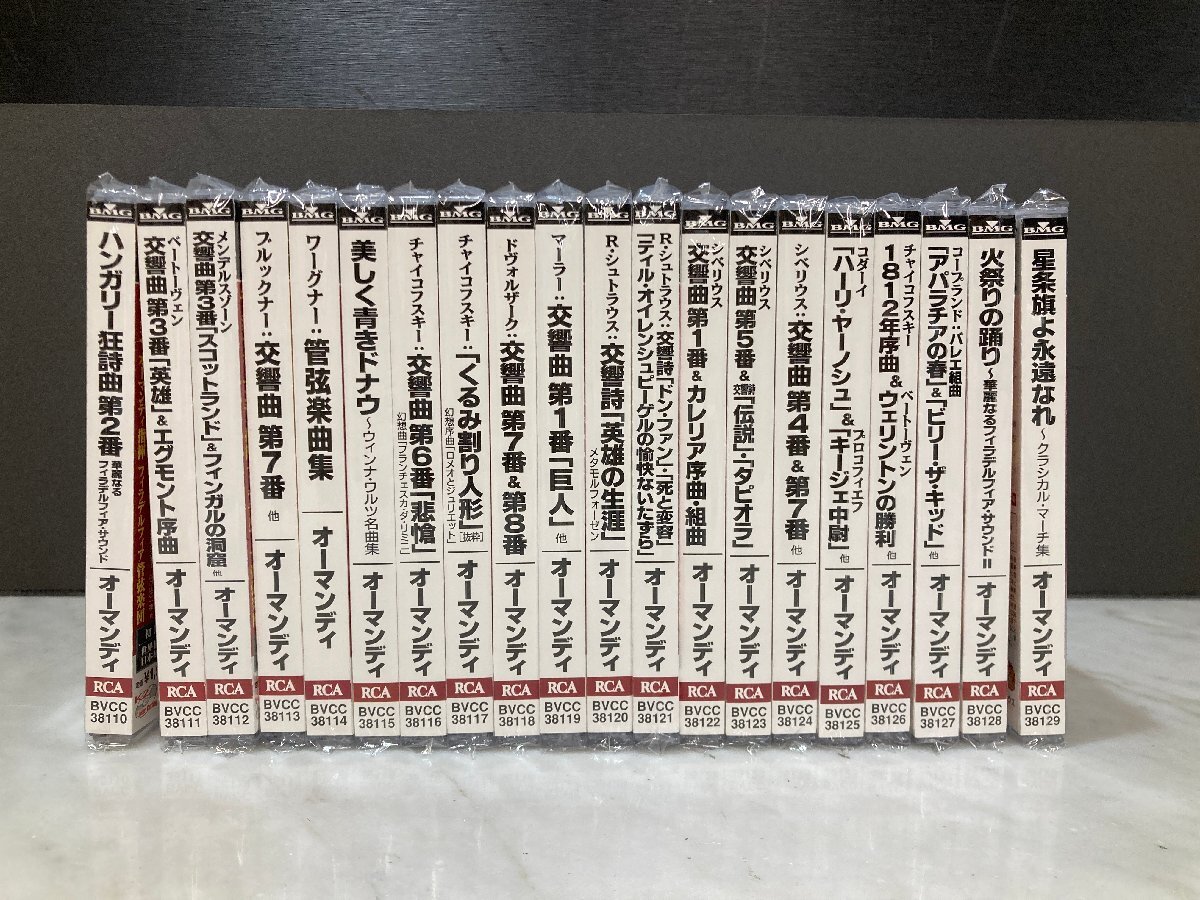 BMG
ハンガリー狂詩曲 第2番 華麗なる
フィラデルフィア・サウンド
オーマンディ
RCA
BVCC
38110
BMG
ベートーヴェン
交響曲 第3番「英雄」&エグモント序曲
オーマンディ
RCA
BVCC
38111
BMG
メンデルスゾーン
交響曲 第3番「スコットランド」&フィンガルの洞窟 他
オーマンディ
RCA
BVCC
38112
BMG
ブルックナー:交響曲 第7番 他
オーマンディ
RCA
BVCC
38113
BMG
ワーグナー:管弦楽曲集
オーマンディ
RCA
BVCC
38114
BMG
美しく青きドナウ〜ウィンナ・ワルツ名曲集
オーマンディ
RCA
BVCC
38115
BMG
チャイコフスキー:交響曲 第6番「悲愴」
幻想曲「フランチェスカ・ダ・リミニ」
オーマンディ
RCA
BVCC
38116
BMG
チャイコフスキー:「くるみ割り人形」[抜粋]
幻想序曲「ロメオとジュリエット」
オーマンディ
RCA
BVCC
38117
BMG
ドヴォルザーク:交響曲 第7番&第8番
オーマンディ
RCA
BVCC
38118
BMG
マーラー:交響曲 第1番「巨人」 他
オーマンディ
RCA
BVCC
38119
BMG
R・シュトラウス:交響詩「英雄の生涯」
メタモルフォーゼン
オーマンディ
RCA
BVCC
38120
BMG
R・シュトラウス:交響詩「ドン・ファン」・「死と変容」
「ティル・オイレンシュピーゲルの愉快ないたずら」
オーマンディ
RCA
BVCC
38121
BMG
シベリウス
交響曲 第1番&カレリア序曲・組曲
オーマンディ
RCA
BVCC
38122
BMG
シベリウス
交響曲 第5番&交響詩「伝説」・「タピオラ」
オーマンディ
RCA
BVCC
38123
BMG
シベリウス:交響曲 第4番&第7番 他
オーマンディ
RCA
BVCC
38124
BMG
コダーイ
「ハーリ・ヤーノシュ」&プロコフィエフ「キージェ中尉」 他
オーマンディ
RCA
BVCC
38125
BMG
チャイコフスキー
1812年序曲&ベートーヴェン ウェリントンの勝利 他
オーマンディ
RCA
BVCC
38126
BMG
コープランド:バレエ組曲
「アパラチアの春」&「ビリー・ザ・キッド」 他
オーマンディ
RCA
BVCC
38127
BMG
火祭りの踊り〜華麗なるフィラデルフィア・サウンドⅡ
オーマンディ
RCA
BVCC
38128
BMG
星条旗よ永遠なれ〜クラシカル・マーチ集
オーマンディ
RCA
BVCC
38129